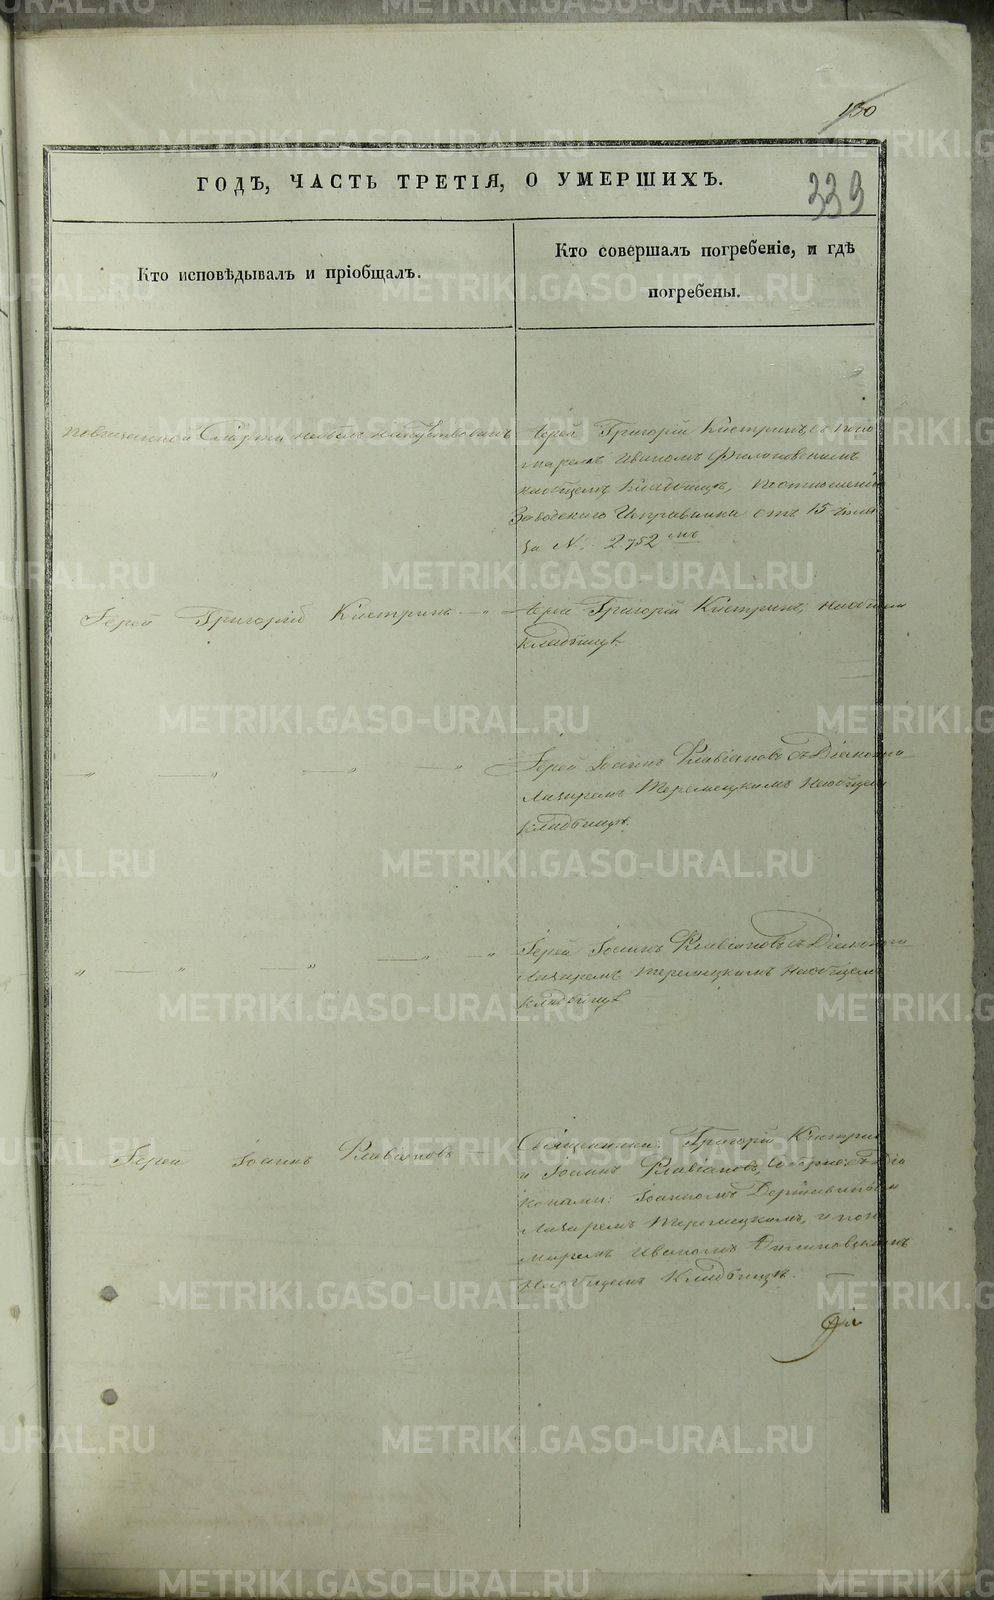 130
ГОДЪ, ЧАСТЬ ТРЕТІЯ, О УМЕРШИХЪ.
339
Кто исповѣдывалъ и пріобщалъ.
Кто совершалъ погребеніе, и гдѣ
погребены.
Іерей Григорій Кистринъ, съ поно
маремъ Иваномъ
наобщемъ кладбищѣ, поотношенію
Заводскаго Исправника отъ 15 Іюля
за № 2752мъ
Іерей Григорій Кистринъ — „ —
Іерей Григорій Кистринъ, наобщемъ
кладбищѣ.
— „ — „ — „ — „ —
Іерей Іоаннъ Флавіановъ съ Діакономъ
Лазаремъ Теремецкимъ Наобщемъ
кладбищѣ.
„ — „ — „ — „ — „
Іерей Іоаннъ Флавіановъ съ Діакономъ
Лазаремъ Теремецкимъ Наобщемъ
кладбищѣ
Іерей Іоаннъ Флавіановъ —
Священники: Григорій Кистринъ
и Іоаннъ Флавіановъ, соборне, съ Діа
конами: Іоанномъ
Лазаремъ Теремецкимъ, и поно
маремъ Иваномъ
наобщемъ Кладбищѣ. —
METRIKI.GASO-URAL.RU